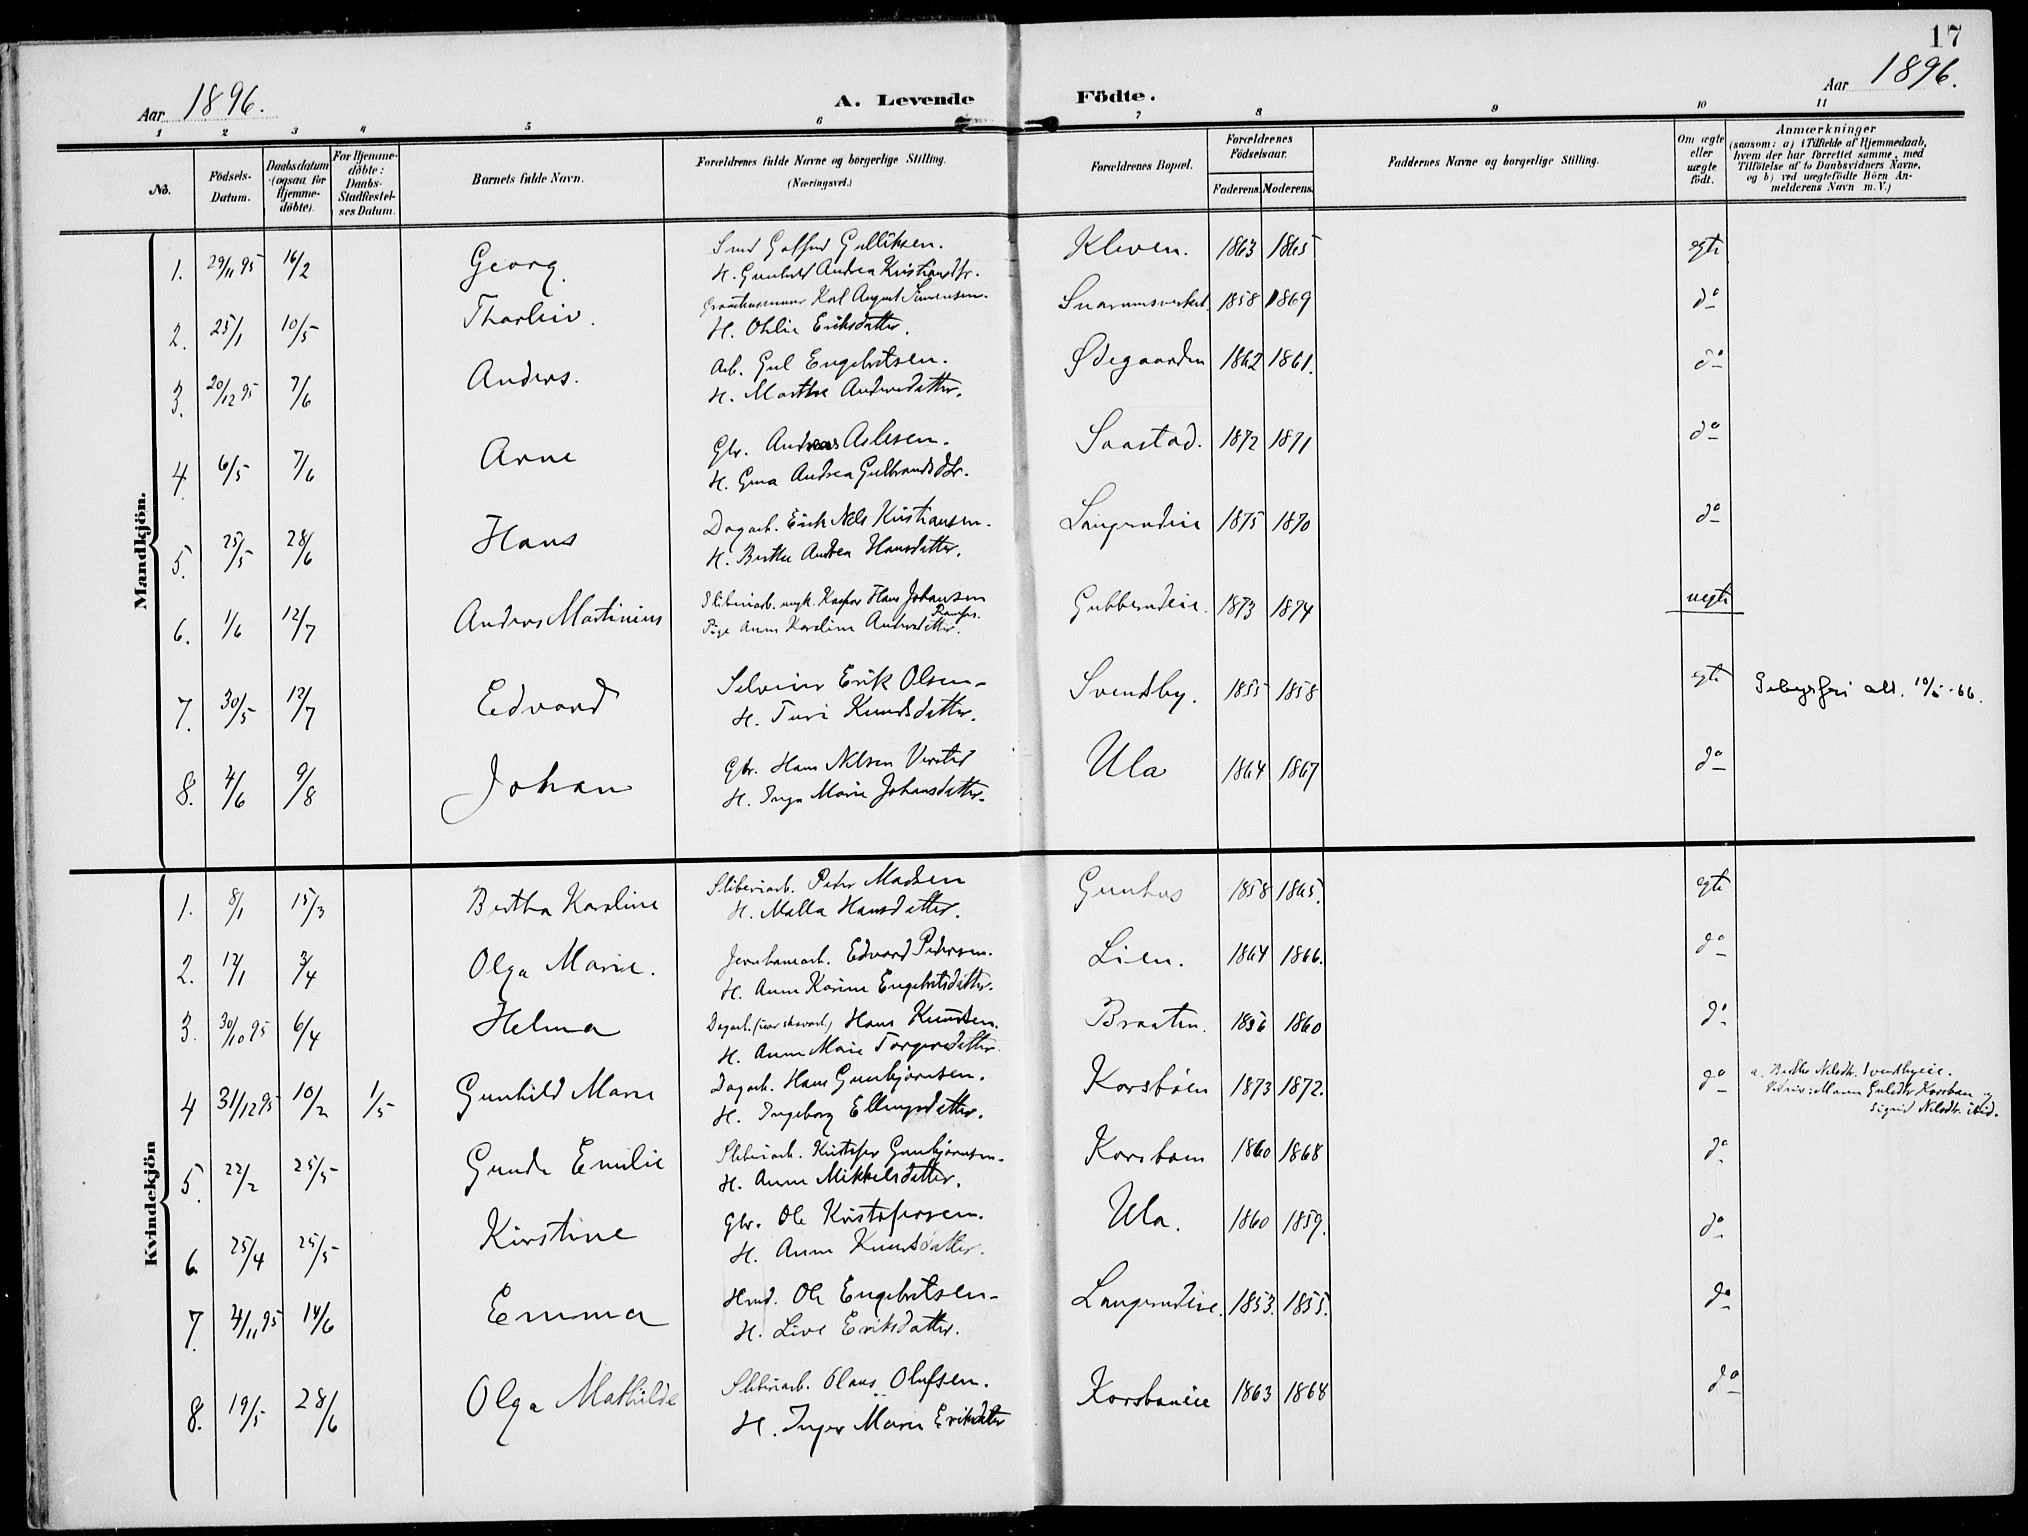 17
Aar 1896.
A. Levende Födte.
Aar 1896.
1 2 3 4 5 6 7 8 9 10 11
No.
Födsels-Datum.
Daabsdatum (ogsaa for Hjemme-döbte).
For Hjemme-döbte: Daabs-Stadfæstel-ses Datum.
Barnets fulde Navn.
Forældrenes fulde Navne og borgerlige Stilling.
(Næringsvei.)
Forældrenes Bopæl.
Forældrenes Födselsaar.
Faderens. Moderens.
Faddernes Navne og borgerlige Stilling.
Om ægte eller uægte födt.
Anmærkninger
(saasom: a) i Tilfælde af Hjemmedaab,
hvem der har forrettet samme, med
Tilföielse af to Daabsvidners Navne,
og b) ved uægtefödte Börn An-
melderens Navn m. V.)
Mandkjön.
1. 29/11 95 16/2 Georg. Gulliksen. Kleven. 1863 1865 egte
H. Gunhild Andrea Kristiansdtr.
2. 25/1 10/5 Thorleiv. Karl August Simensen. Snarumsverket. 1858 1869 do
H. Othlie Eriksdatter.
3. 20/12 95 7/6 Anders. Arb. Gul Engebretsen. Ødegaarden 1862 1861. do
H. Marthe Andersdatter.
4. 6/5 7/6 Arne Gbr. Andreas Aslesen. Saastad. 1872 1871 do
H. Gina Andrea Gulbrandsdtr.
5. 25/5 28/6 Hans Dagarb. Erik Nels Kristiansen. Langrudeie 1875 1870 do
H. Berthe Andrea Hansdatter.
6. 1/6 12/7 Anders Martinius Sliberiarb. ungk. Kasper Hans Johansen Gubberudeie. 1873 1874 uegte
Pige Anne Karoline Andersdatter.
7. 30/5 12/7 Edvard Selveier Erik Olsen Svendsby. 1855 1858 egte
H. Turi Knudsdatter.
8. 4/6 9/8 Johan Gbr. Hans Nilsen Ula 1864 1867 do
H. Inga Marie Johansdatter.
Kvindekjön
1. 8/1 15/3 Bertha Karoline Sliberiarb. Peder Madsen Gunhus 1858 1865. egte
H. Malla Hansdatter.
2. 12/1 3/4 Olga Marie. Jernbanearb. Edvard Pedersen. Lien. 1864 1866. do
H. Anne Karine Engebretsdatter.
3. 30/10 95 6/4 Helma Dagarb. Hans Knudsen. Braaten. 1856 1860 do
H. Anne Marie Torgersdatter.
4 31/12 95 10/2 1/5 Gunhild Marie Dagarb. Hans Gunbjørnsen. Korsbøen 1873 1872. do
H. Ingeborg Ellingsdatter.
Sigrid Nelsdtr. ibid.
5. 22/2 25/5 Gunda Emilie Sliberiarb. Kristofer Gunbjørnsen. Korsbøen 1860 1868 do
H. Anne Mikkelsdatter.
6. 25/4 25/5 Kirstine Gbr. Ole Kristofersen. Ula. 1860 1859. do
H. Anne Knudsdatter.
7. 4/11 95 14/6 Emma Hmd. Ole Engebretsen Langrudeie. 1853. 1855. do
H. Live Eriksdatter.
8. 19/5 28/6 Olga Mathilde Sliberiarb. Olaus Olufsen. Korsbøneie 1863 1868 do
H. Inger Marie Eriksdatter